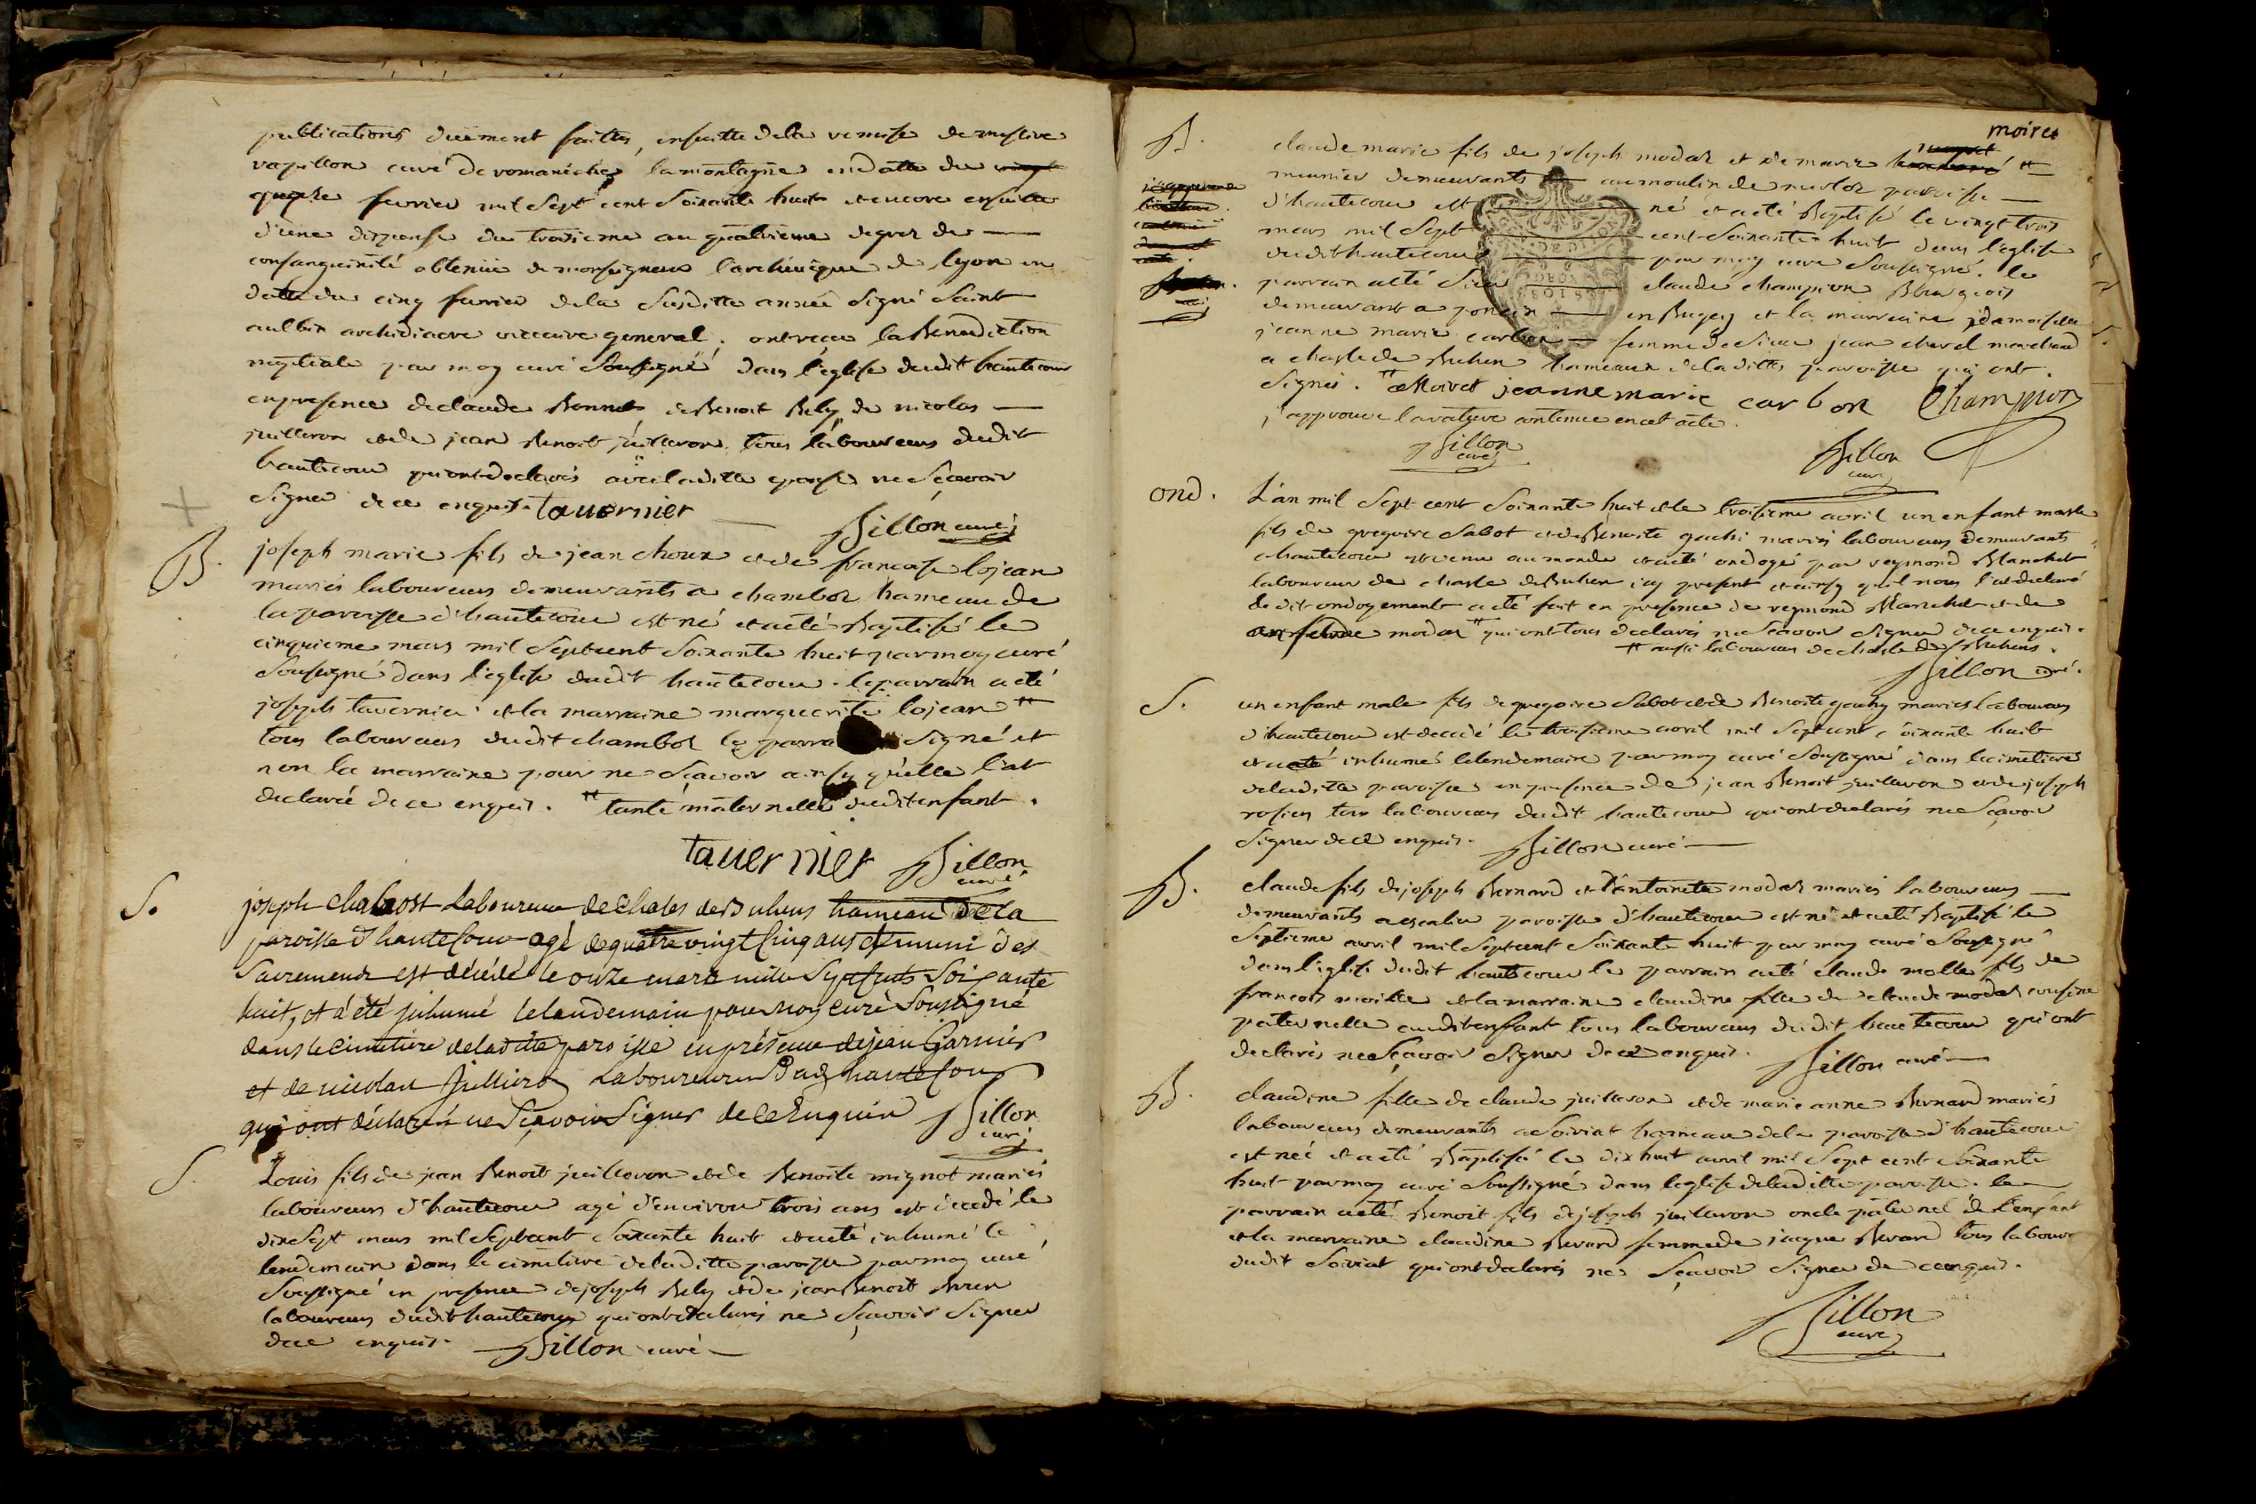 publications duement faittes, ensuitte dela remise de messire
vapillon curé de romanèche la montagne en datte du
fevrier mil sept cent soixante huit et encore ensuitte
d'une dispense du troisieme au quatrieme degrez de
consanguinité obtenüe de monseigneur l'archevêque de lyon en
datte du cinq fevrier dela susditte année signé saint
aulbin archidiacre vicaire general. ont reçu la Benediction
nuptiale par moy curé soussigné dans l'eglise dudit hautecour
en presence de claude Bonnet de Benoit Rely de nicolas
juilleron et de jean Benoit juilleron tous laboureurs dudit
hautecour qui ont declarés avec laditte epouse ne sçavoir
signer de ce enquis. tauernier Billon curé
B. joseph marie fils de jean choux et de françoise lojean
mariés laboureurs demeurants a chambol hameau de
la paroisse d'hautecour est né et a eté Baptisé le
cinquieme mars mil sept cent soixante huit par moy curé
soussigné dans l'eglise dudit hautecour. le parrain a eté
joseph tavernier et la marraine marguerite lojean #
tous laboureurs dudit chambol le parra signé et
non la marraine pour ne sçavoir ainsy qu'elle l'at
declaré de ce enquis. # tante maternelle dudit enfant.
tauernier Billon curé
S. joseph Chabost Laboureur de Chales de Buhens hameau de la
paroisse d'hautecour agé de quatre vingt cinq ans et muni des
sacremens est décédé le onze mars mille sept cents soixante
huit, et a été inhumé le landemain par moy curé soussigné
dans le cimetiere de la ditte paroisse en présence de jean Garnier
et de nicolas Juilleron Laboureurs dud hautecour
qui ont déclaré ne sçavoir signer de ce enquis Billon curé
S. Louis fils de jean Benoit juilleron et de Benoite mignot mariés
laboureurs d'hautecour agé d'environ trois ans est decedé le
dix sept mars mil sept cent soixante huit et a eté inhumé le
lendemain dans le cimetiere de laditte paroisse par moy curé
soussigné en presence de joseph Rely et de jean Benoit
laboureurs dudit hautecour qui ont declarés ne sçavoir signer
de ce enquis. Billon curé
moiret
B. claude marie fils de joseph modas et de marie #
meunier demeurants au moulin de paroisse
d'hautecour est né et a eté Baptisé le vingt trois
mars mil sept cent soixante huit dans l'eglise
dudit hautecour par moy curé soussigné. le
parrain a eté sieur claude champion Bourgeois
demeurant a poncin en Bugey et la marraine demoiselle
jeanne marie carbon femme de sieur jean marchand
a chasle de Buhen hameau de laditte paroisse qui ont
signés. # Moiret jeanne marie carbon Champion
j'approuve la rature contenue en cet acte.
Billon curé Billon curé
ond. L'an mil sept cent soixante huit et le troisieme avril un enfant masle
fils de gregoire sabot et de Benoite mariés laboureurs demeurants
a hautecour est venu au monde et a eté ondoyé par reymond Blanchet
laboureur de chasle de Buhen icy present et ainsy qu'il nous l'at declaré
ledit ondoyement a eté fait en presence de reymond Blanchet et de
modas # qui ont tous declarés ne sçavoir signer de ce enquis.
# aussi laboureur de chasle de Buhens.
Billon curé.
S. un enfant male fils de gregoire sabot et de Benoite mariés laboureurs
d'hautecour est decedé le troisieme avril mil sept cent soixante huit
et a eté inhumé le lendemain par moy curé soussigné dans le cimetiere
de laditte paroisse en presence de jean Benoit juilleron et de joseph
rosier tous laboureurs dudit hautecour qui ont declarés ne sçavoir
signer de ce enquis. Billon curé
B. claude fils de joseph Bernard et d'antoinette modas mariés laboureurs
demeurants a paroisse d'hautecour est né et a eté Baptisé le
septieme avril mil sept cent soixante huit par moy curé soussigné
dans l'eglise dudit hautecour le parrain a eté claude molle fils de
francois molle et la marraine claudine fille de claude modas cousine
paternelle dudit enfant tous laboureurs dudit hautecour qui ont
declarés ne sçavoir signer de ce enquis. Billon curé
B. claudine fille de claude juilleron et de marie anne Bernard mariés
laboureurs demeurants a soiriat hameau de la paroisse d'hautecour
est née et a eté Baptisée le dix huit avril mil sept cent soixante
huit par moy curé soussigné dans l'eglise de laditte paroisse. le
parrain a eté Benoit fils de joseph juilleron oncle paternel de l'enfant
et la marraine claudine Berard femme de jacque Berard tous labour
dudit soiriat qui ont declarés ne sçavoir signer de ce enquis.
Billon
curé